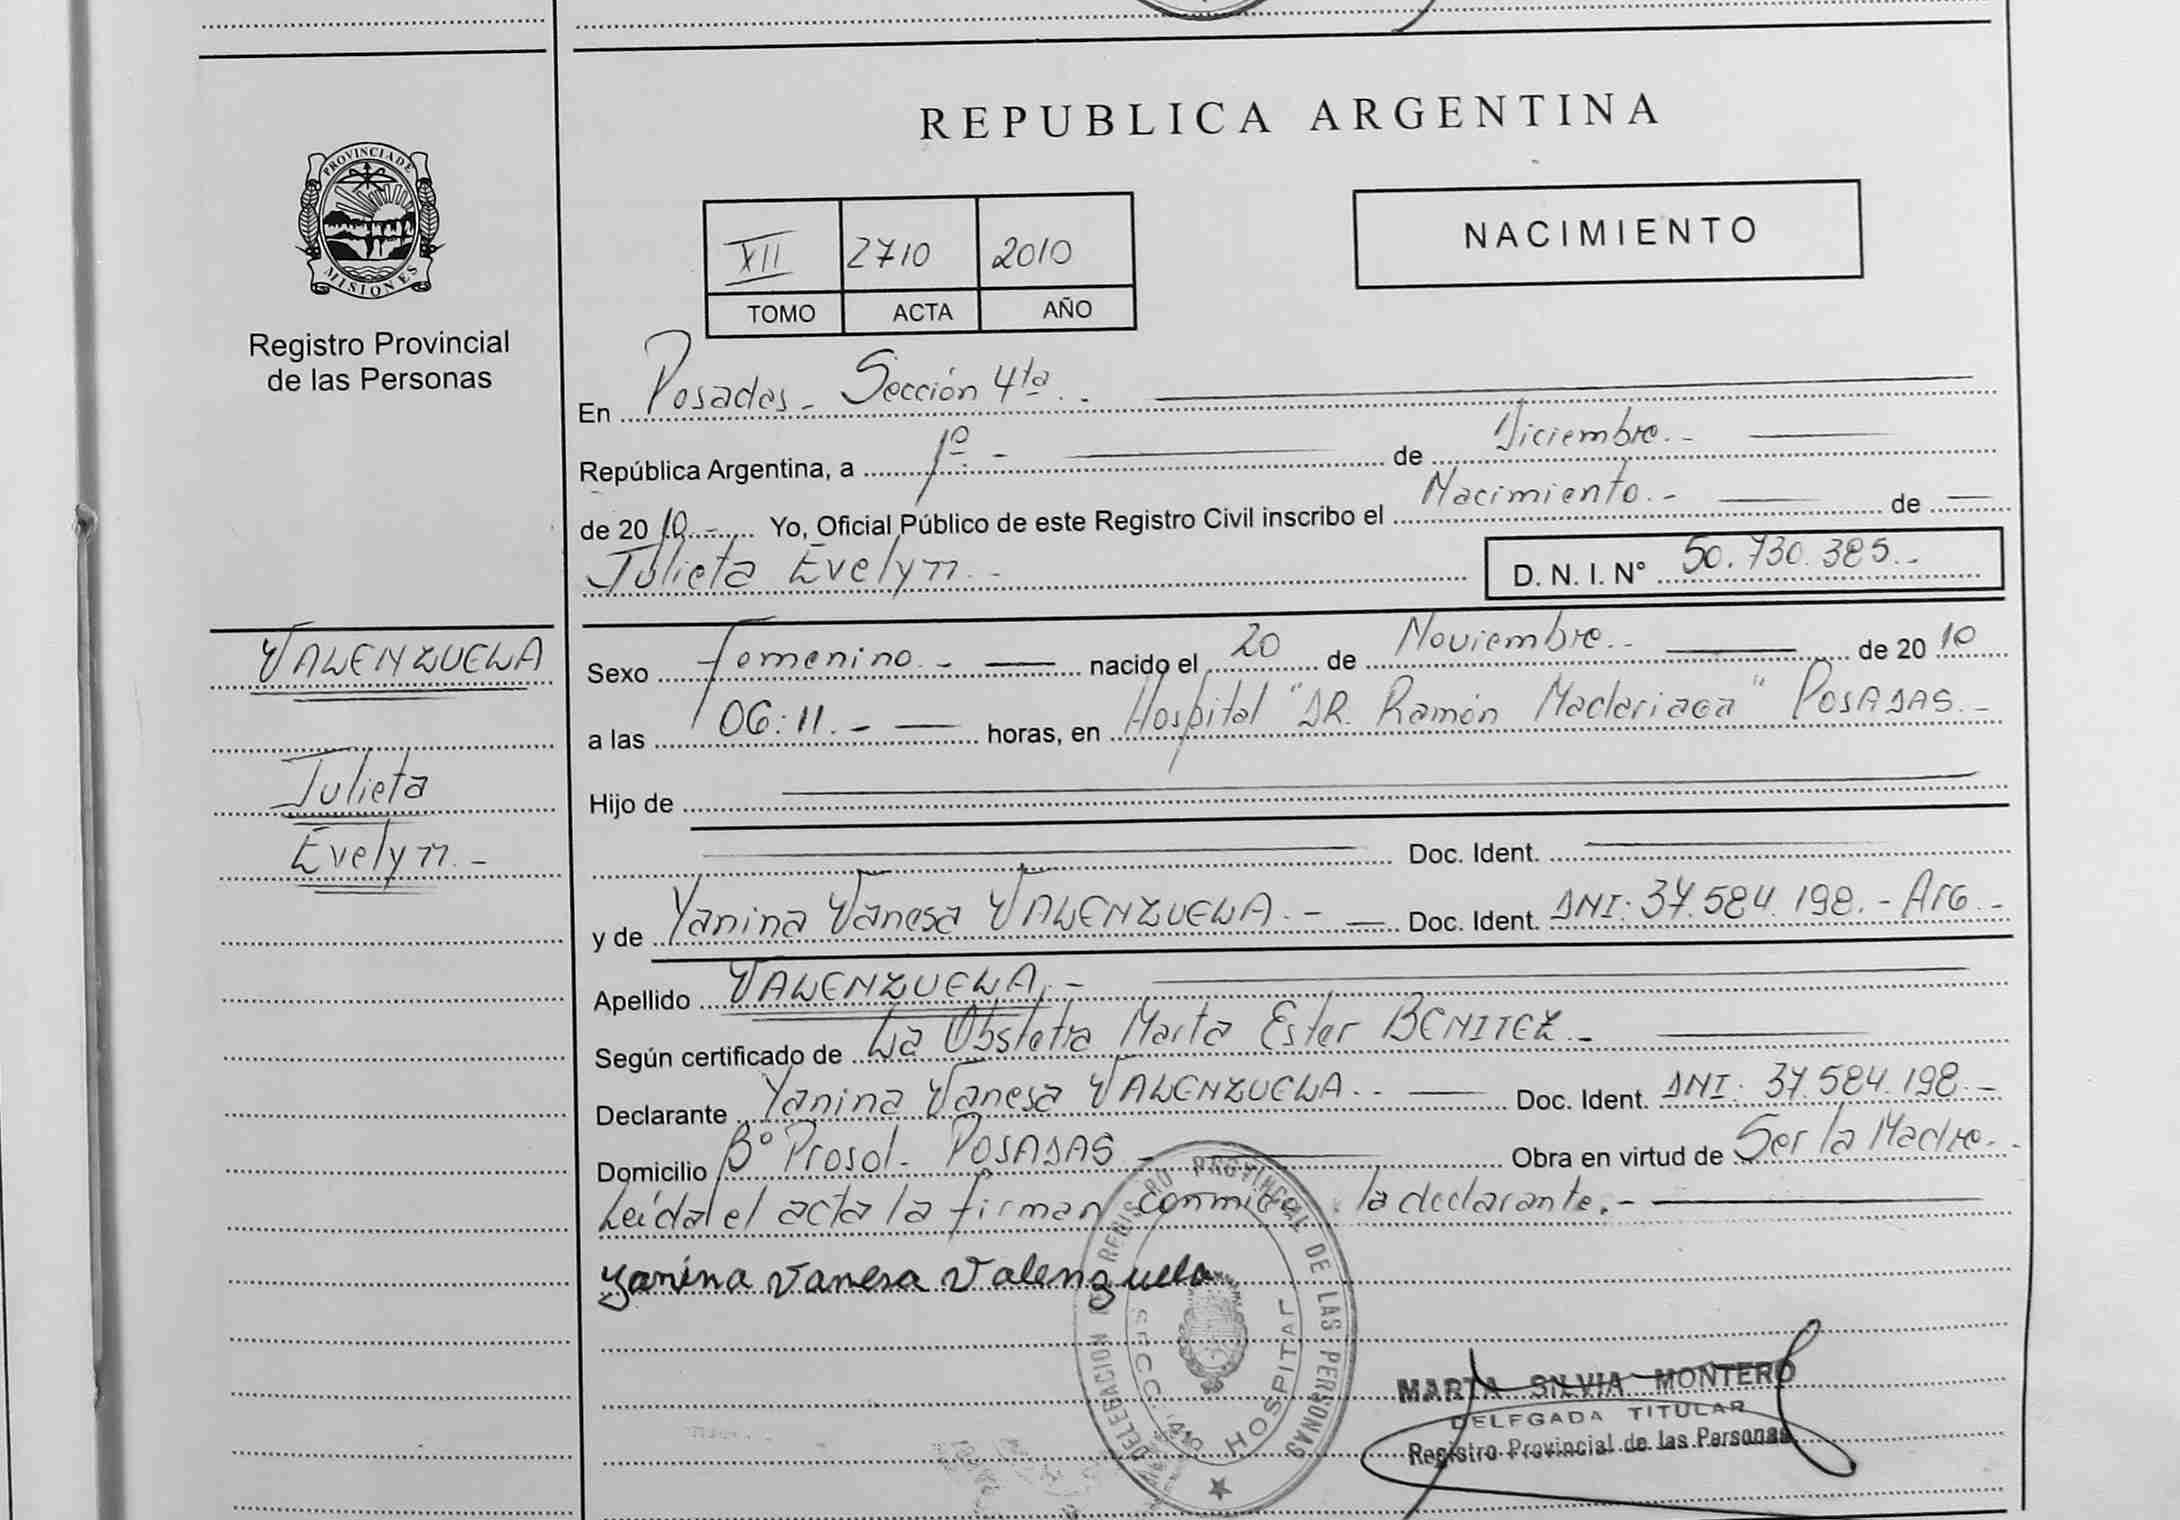 REPUBLICA ARGENTINA
PROVINCIA DE
MISIONES
Registro Provincial
de las Personas
XII 2710 2010
TOMO ACTA AÑO
NACIMIENTO
En Posadas - Sección 4ta. -
República Argentina, a 1º - de Diciembre. -
de 2010.- Yo, Oficial Público de este Registro Civil inscribo el Nacimiento. - de
Julieta Evelyn. - D. N. I. Nº 50.730.385.-
VALENZUELA
Julieta
Evelyn. -
Sexo Femenino. - nacido el 20 de Noviembre. - de 2010
a las 06:11. - horas, en Hospital "DR. Ramón Madariaga" POSADAS. -
Hijo de
Doc. Ident.
y de Yanina Vanesa VALENZUELA. - Doc. Ident. DNI: 37.584.198. - Arg. -
Apellido VALENZUELA. -
Según certificado de La Obstetra Marta Ester BENITEZ. -
Declarante Yanina Vanesa VALENZUELA. - Doc. Ident. DNI: 37.584.198. -
Domicilio Bº Prosol - POSADAS - Obra en virtud de Ser la Madre. -
Leída el acta la firman conmigo: la declarante. -
Yanina Vanesa Valenzuela
DELEGACION REGISTRO PROVINCIAL DE LAS PERSONAS
SECC. 4ta HOSPITAL
MARTA SILVIA MONTERO
DELEGADA TITULAR
Registro Provincial de las Personas